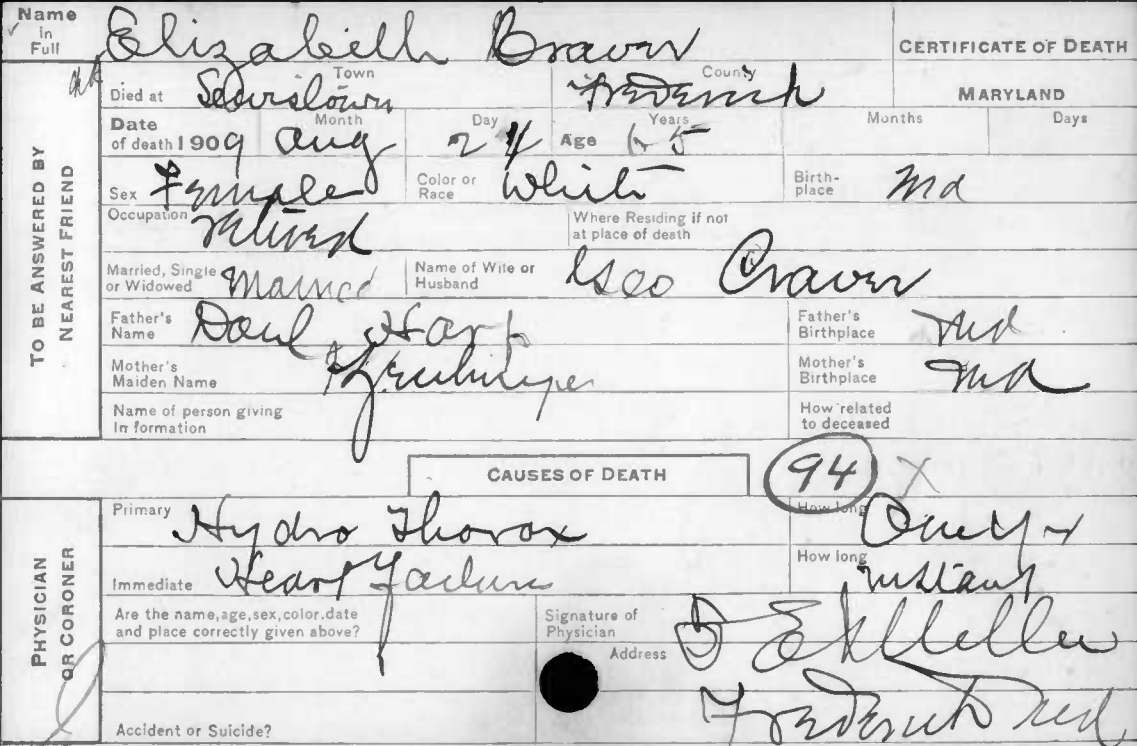 Name in Full Elizabeth Craver CERTIFICATE OF DEATH
TO BE ANSWERED BY NEAREST FRIEND
Died at Lewistown Town Frederick County MARYLAND
Date of death 1909 Aug Month 24 Day Age 65 Years Months Days
Sex Female Color or Race White Birth-place Md
Occupation Retired Where Residing if not at place of death
Married, Single or Widowed Married Name of Wife or Husband Geo Craver
Father's Name Danl Harp Father's Birthplace Md
Mother's Maiden Name Mother's Birthplace Md
Name of person giving In formation How related to deceased
CAUSES OF DEATH 94 X
PHYSICIAN OR CORONER
Primary Hydro Thorax How long One Yr
Immediate Heart Failure How long Instant
Are the name,age,sex,color.date and place correctly given above? Signature of Physician
Address Frederick Md
Accident or Suicide?